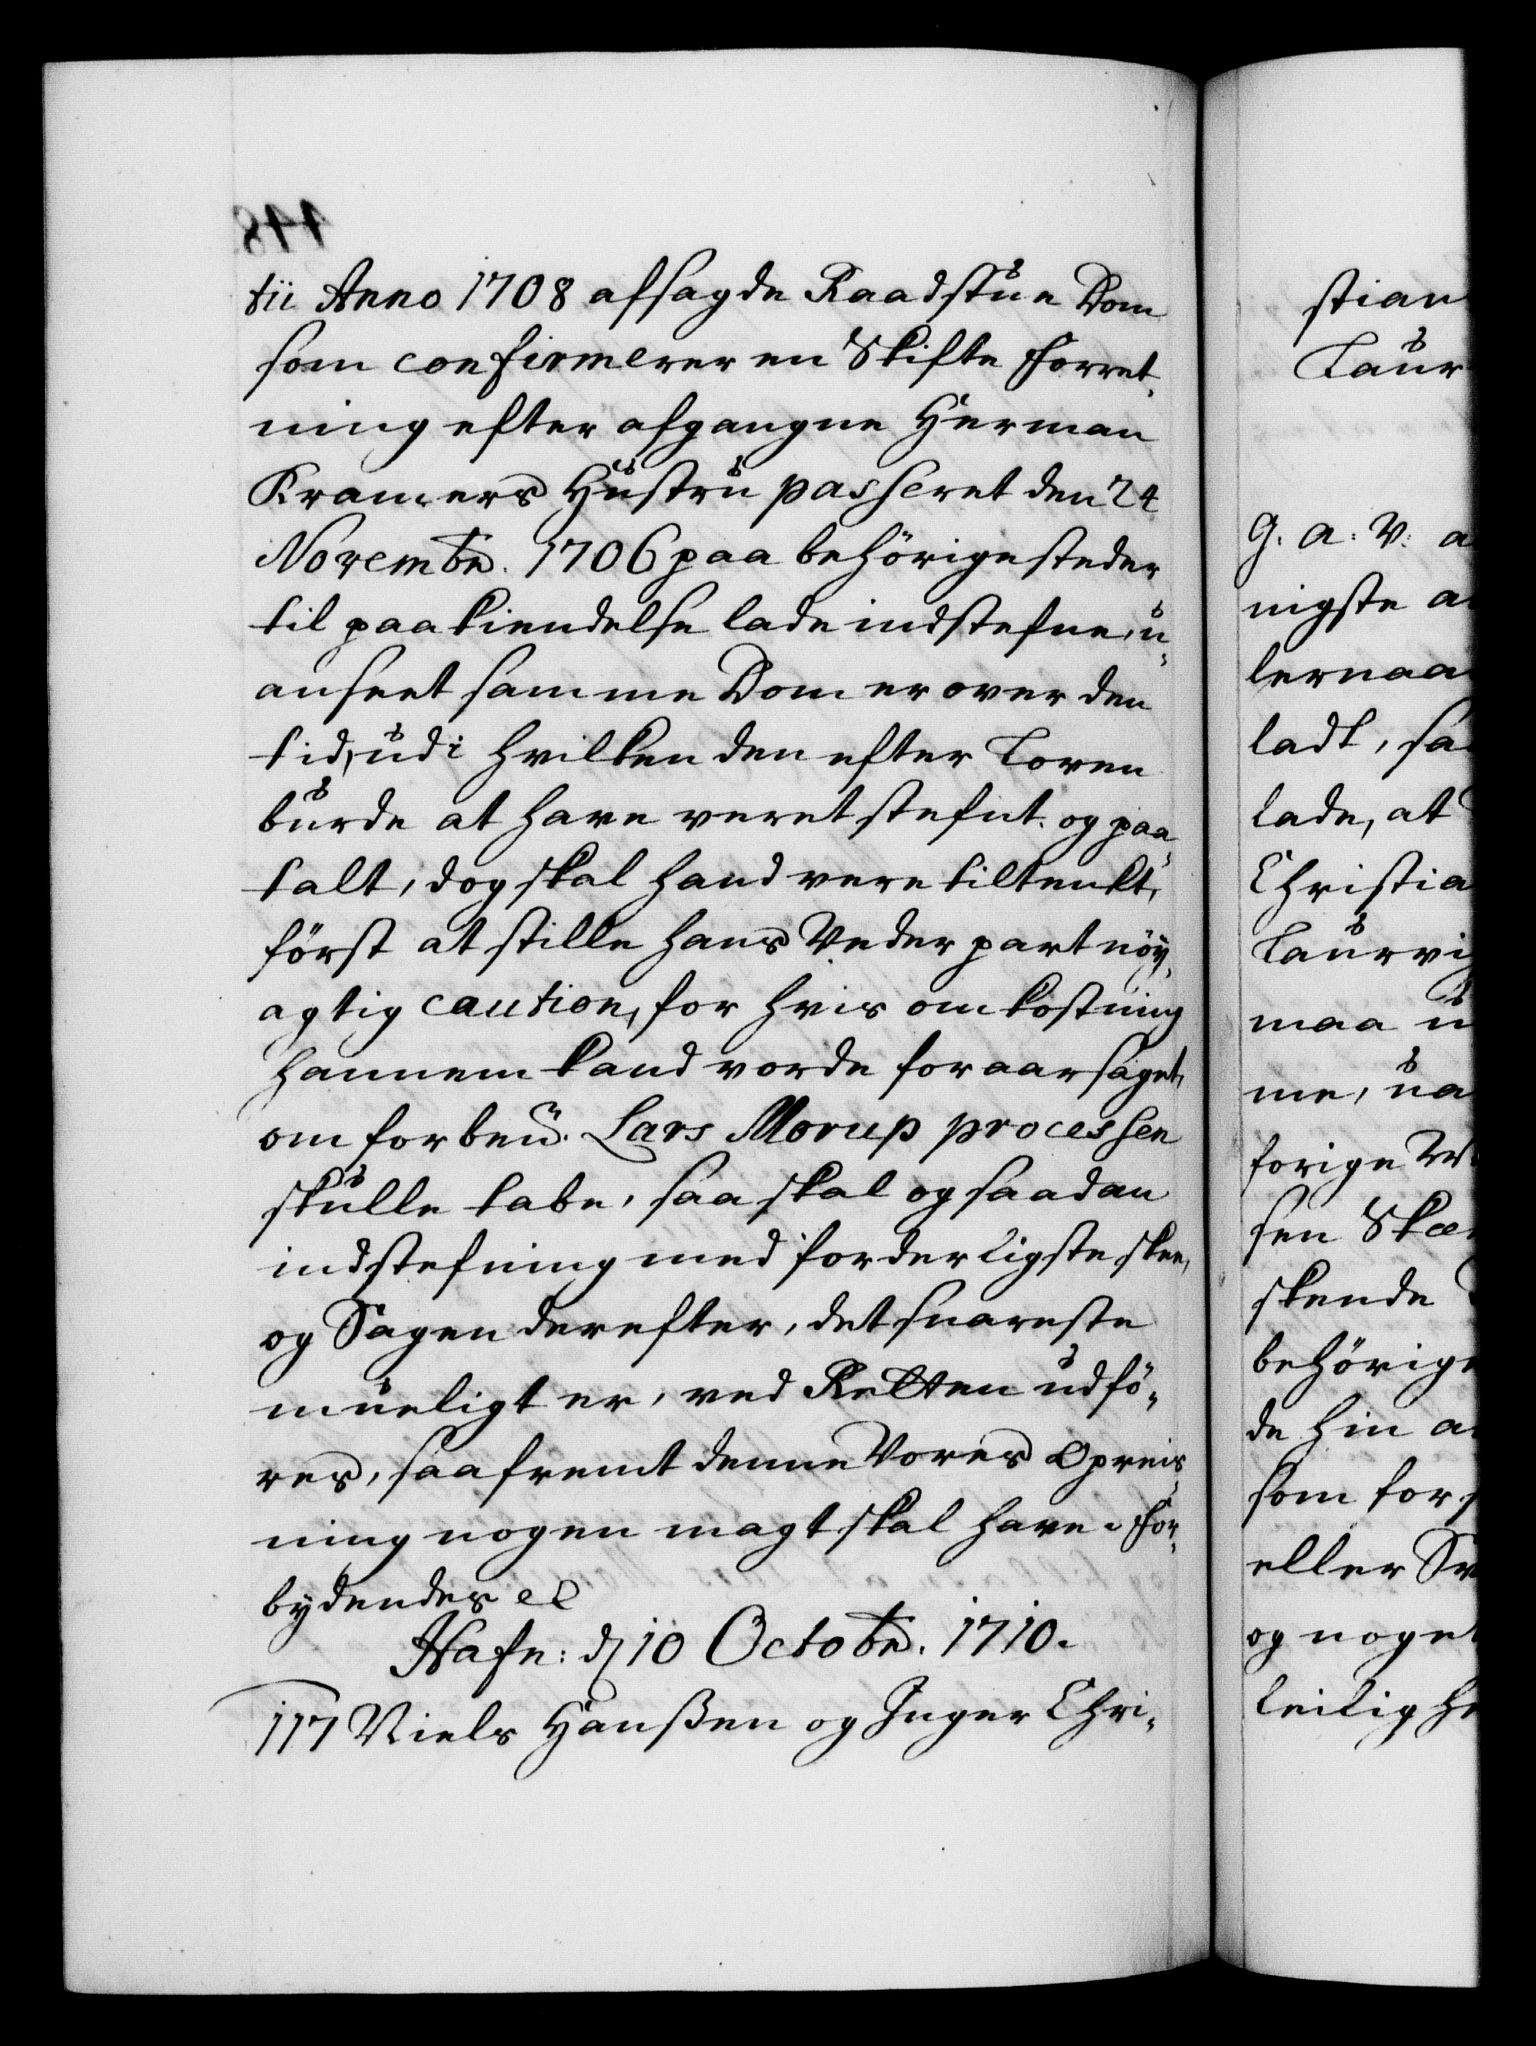 tii Anno 1708 afsagde Raadstue Dom
som confirmerer en Skifte Forret-
ning efter afgangne Herman
Kramers Hustru passeret den 24
Novembr. 1706 paa behörige steder
til paakiendelse lade indstefne, u-
anseet samme Dom er over den
tid, udi hvilken den efter Loven
burde at have veret stefnt og paa-
talt, dog skal hand vere tiltenkt,
först at stille hans Vederpart nöy-
agtig caution, for hvis omkostning
hannem kand vorde foraarsaget,
om forben. Lars Morup processen
skulle tabe, saa skal og saadan
indstefning med forderligste skee,
og Sagen derefter, det snareste
mueligt er, ved Retten udfö-
res, saafremt denne Vores opreis-
ning nogen magt skal have. For-
bydendes ec
Hafn: d 10 Octobr. 1710.
117 Niels Hanßen og Inger Chri-
stian
Laur
G. A. V. a
nigste a
lernaa
ladt, sa
lade, at
Christia
Laurvig
maa u
me, ua
forige
sen
skende
behörige
de hin a
som for
eller
og noget
leilighe